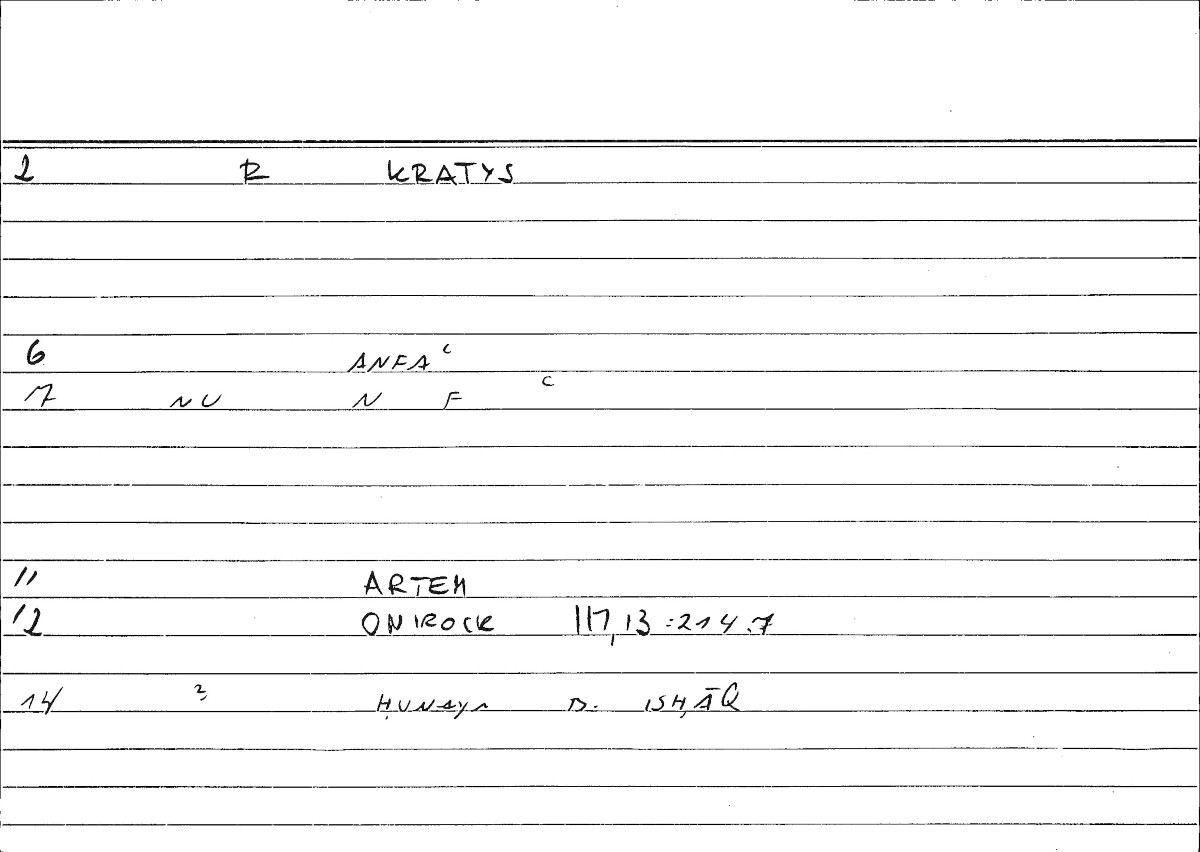 2 R KRATYS
6 ANFAʿ
7 NU N F ʿ
11 ARTEM
12 ONIROCR 117,13:214.7
14 2 ḤUNAYN B. ISḤĀQ